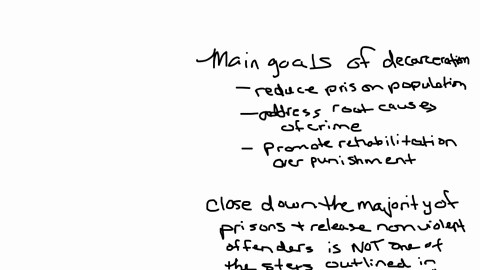 Main goals of decarceration
- reduce prison population
- address root causes
of crime
- promote rehabilitation
over punishment
close down the majority of
prisons + release nonviolent
offenders is NOT one of
the steps outlined in